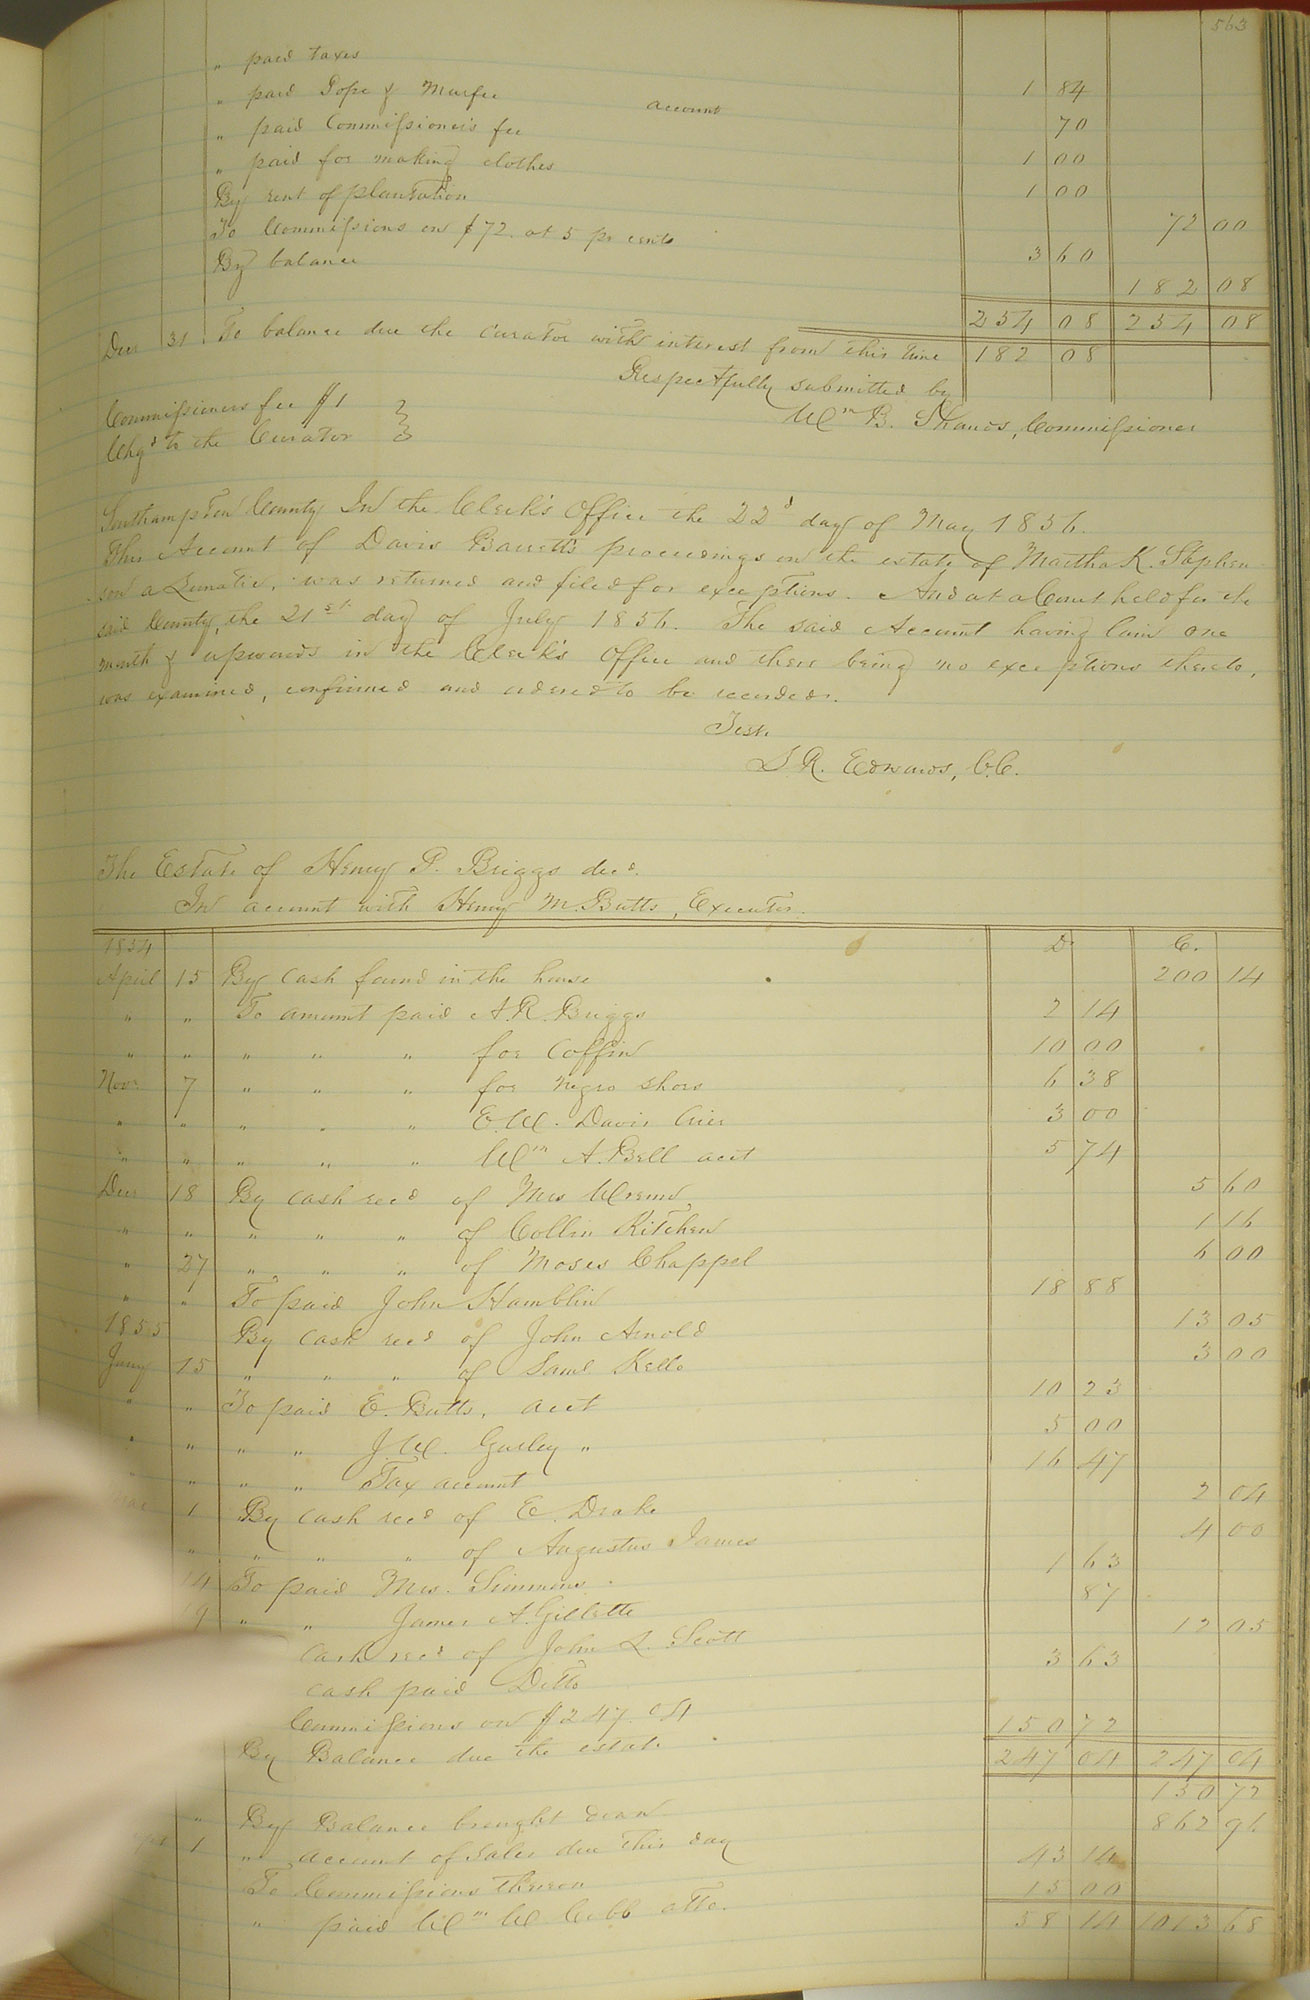 563
" paid taxes 1 84
" paid Pope & Murfee account 70
" paid Commissioners fee 1 00
" paid for making clothes 1 00
By rent of plantation 72 00
To Commissions on $72. at 5 pr cents 3 60
By balance 182 08
254 08 254 08
Decr 31 To balance due the curator with interest from this time 182 08
Respectfully submitted by
Wm B. Shands, Commissioner
Commissioners fee $1
Chgd to the Curator
Southampton County In the Clerk's Office the 22d day of May 1856.
This Account of Davis Barrett's proceedings on the estate of Martha K. Stephen-
son a Lunatic, was returned and filed for exceptions. And at a Court held for the
said County, the 21st day of July 1856. The said Account having lain one
month & upwards in the Clerk's Office and there being no exceptions thereto,
was examined, confirmed and ordered to be recorded.
Teste
L R. Edwards, C.C.
The Estate of Henry P. Briggs decd.
In account with Henry M. Butts, Executor.
1854 D. C.
April 15 By cash found in the house 200 14
" " To amount paid A. R. Briggs 2 14
" " " " " for Coffin 10 00
Novr 7 " " " for negro shoes 6 38
" " " " " E. W. Davis Crier 3 00
" " " " " Wm A. Bell acct 5 74
Decr 18 By cash recd of Mrs 5 60
" " " " " of Collin Kitchen 1 16
" 27 " " " of Moses Chappel 6 00
" " To paid John Hamblin 18 88
1855 By cash recd of John Arnold 13 05
Jany 15 " " " of Saml Kello 3 00
" " To paid E. Butts, acct 10 23
" " " " J. W. Gurley " 5 00
" " " " Tax account 16 47
Mar 1 By cash recd of E. Drake 2 04
" " " " of Augustus James 4 00
14 To paid Mrs. Simmons 1 63
19 " " James A. Gillette 87
cash recd of John L. Scott 12 05
cash paid Ditto 3 63
Commissions on $247.04
By Balance due the estate 150 72
247 04 247 04
" By Balance brought down 150 72
1 " account of Sales due this day 862 96
To Commissions thereon 43 14
" paid Wm W Cobb atto. 15 00
58 14 1013 68